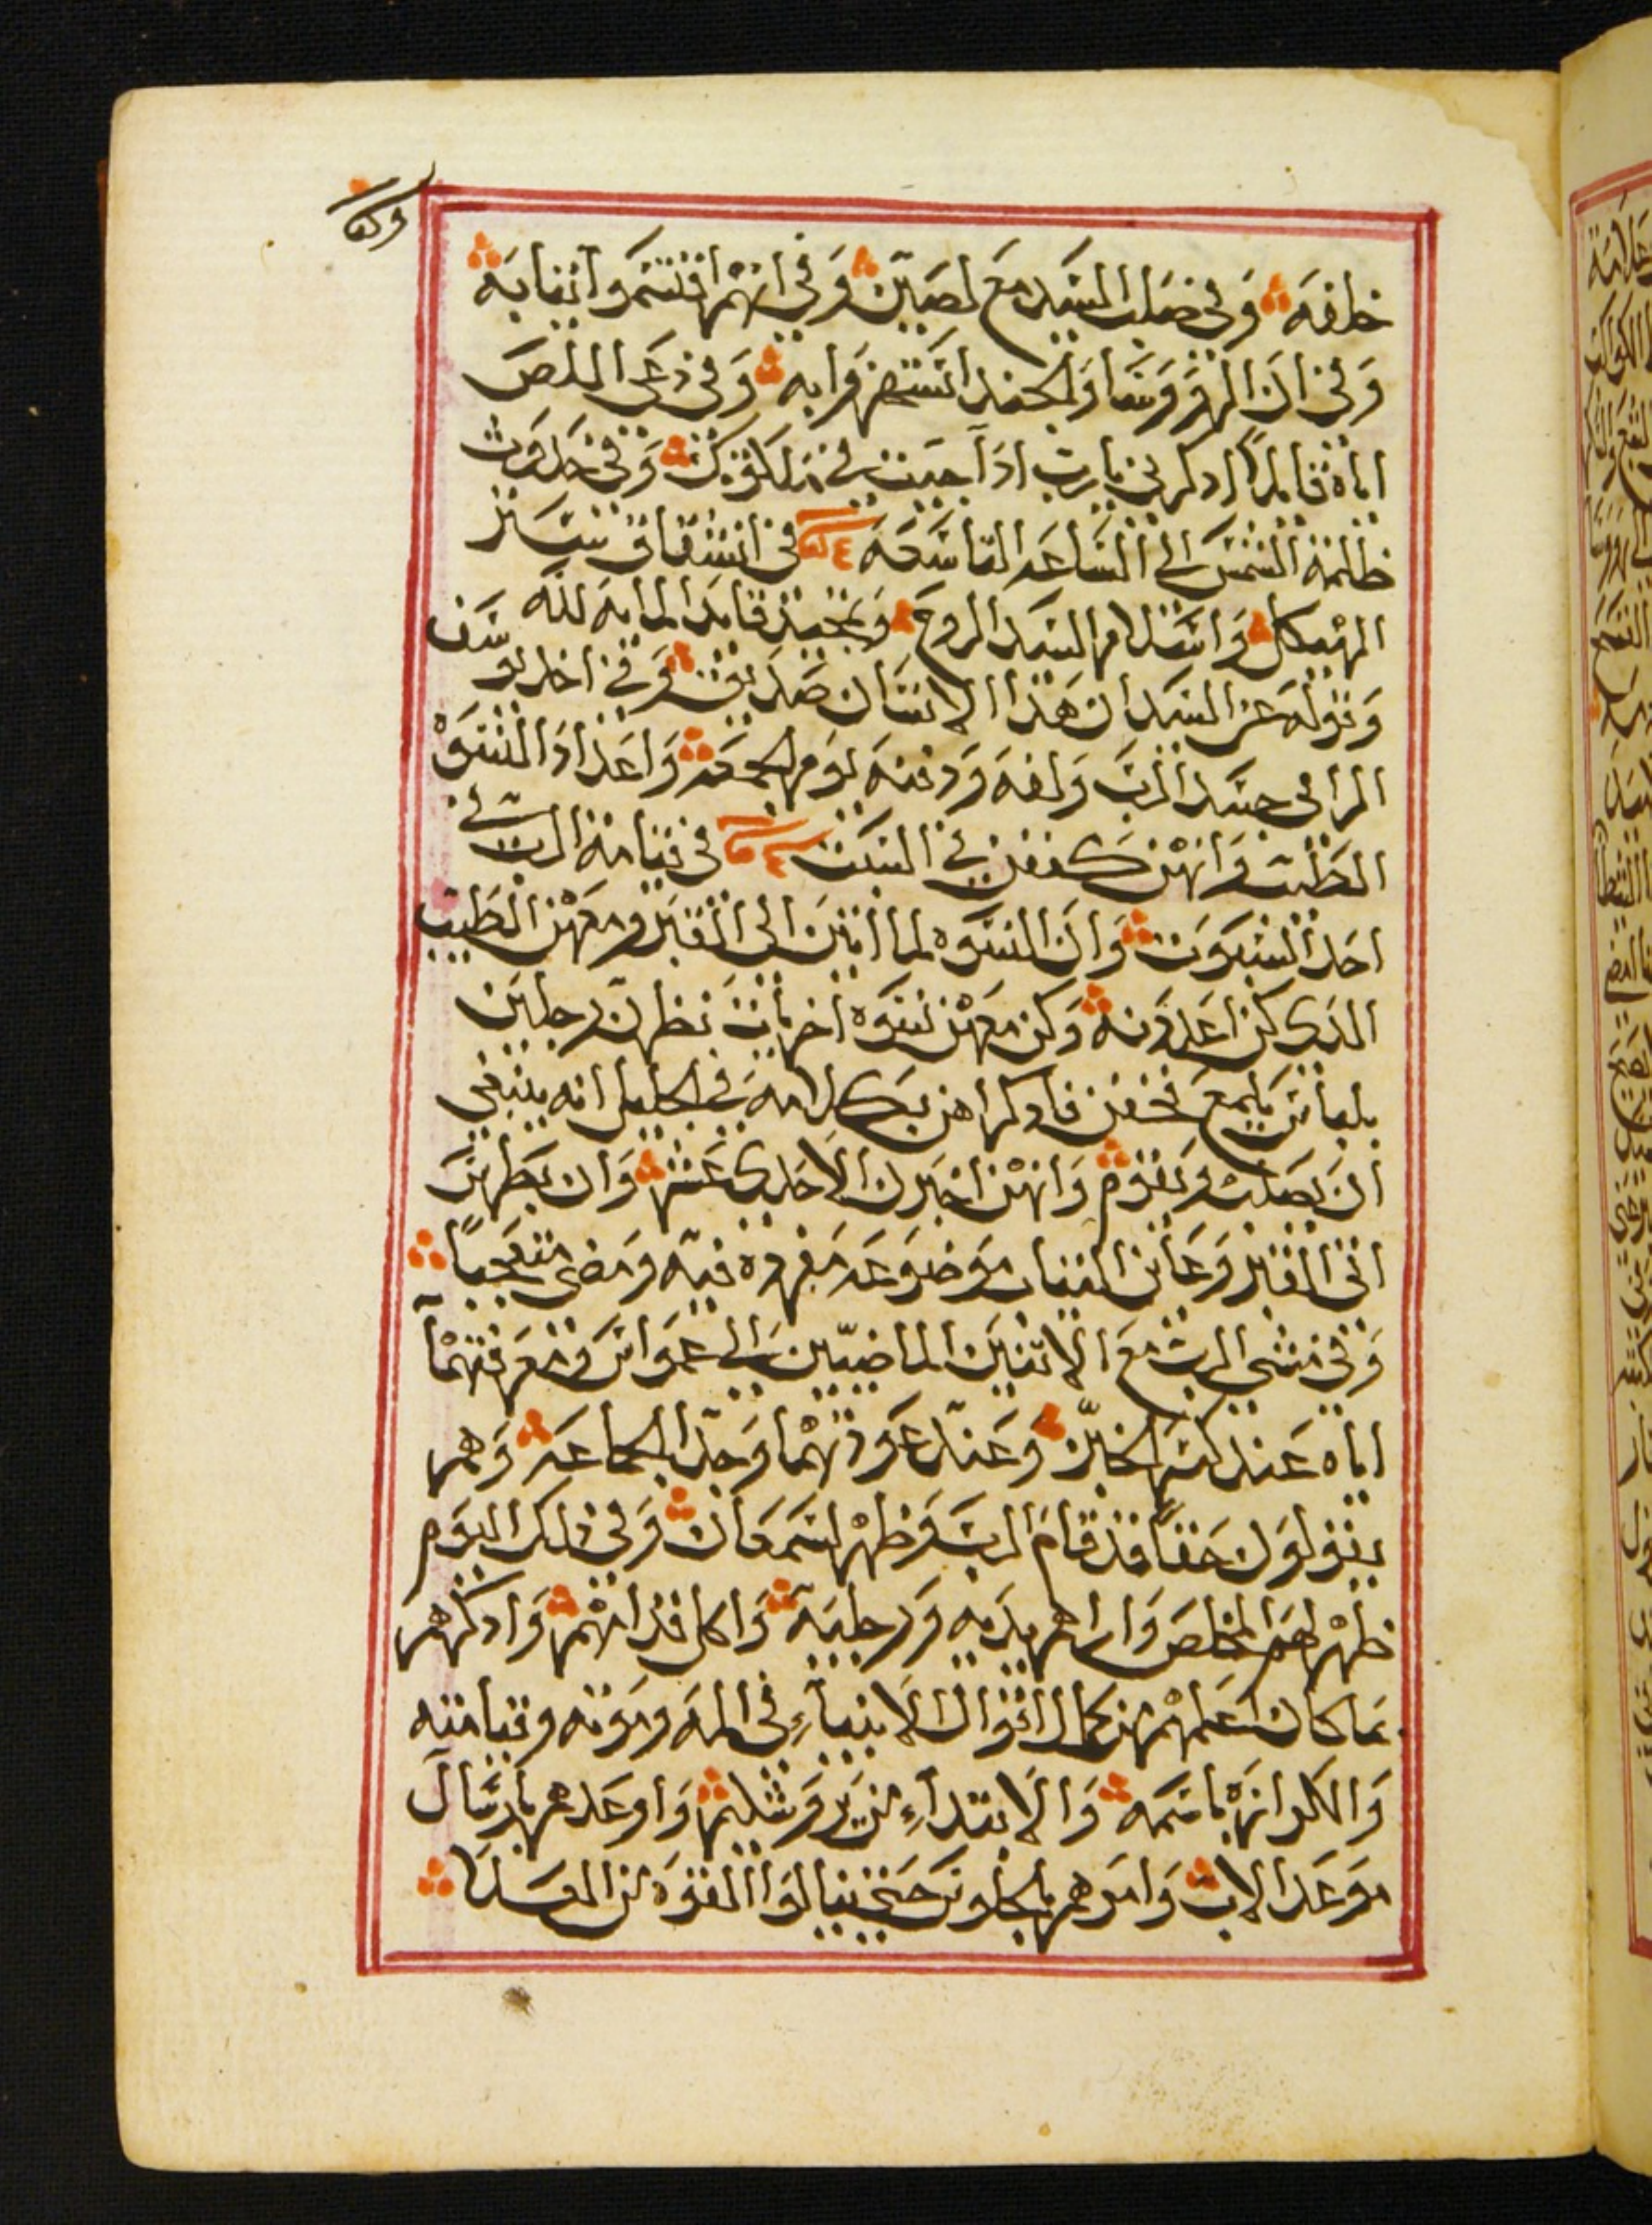 خلفه وفي صلب السيد مع لصين وفي انهم اقتسموا ثيابه
وفي ان الهرووسا والجند استهزوا به وفي دعى اللص
اياه قايلاً ادكرني يارب ادا جيت في ملكوتك وفي حدوث
ظلمة الشمس الى الساعه التاسعه في انشقاق ستر
الهيكل واسلام السيد الروح وتمجيد قايد المايه لله
وقوله عن السيد ان هدا الانسان صديق وفي اخد يوسف
الرامي جسد الرب ولفه ودفنه يوم الجمعه واعداد النسوه
الطيب وانهن كففن في السبت في قيامة الرب في
احد السبوت وان النسوه لما اتين الى القبر ومعهن الطيب
الدي كن اعددنه وكن معهن نسوه اخريات نظرن رجلين
بلباس يلمع فخفن فادكراهن بكلامه في الجليل انه ينبغي
ان يصلب ويقوم وانهن اخبرن الاحدى عشر وان بطرس
اتى القبر وعاين الثياب موضوعه مفرده فيه ومضى متعجباً
وفي مشي الرب مع الاتنين الماضيين الى عمواس ومعرفتهما
اياه عند كسر الخبز وعند عودتهما وجدا الجماعه وهم
يقولون حقاً قد قام الرب وظهر لسمعان وفي دلك اليوم
ظهر لهم المخلص واراهم يديه ورجليه واكل قدامهم وادكرهم
بما كان اعلمهم من كمال اقوال الانبياء في المه وموته وقيامته
والكرازه باسمه والابتداء من يروشليم واوعدهم بارسال
موعد الاب وامرهم بالجلوس حتى ينالوا القوه من العلا